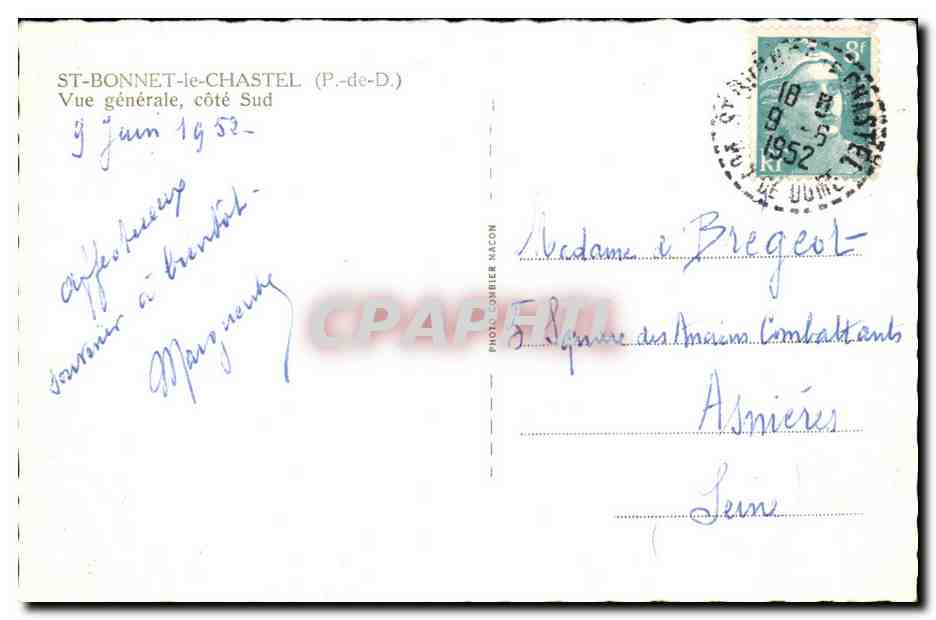 ST-BONNET-le-CHASTEL (P.-de-D.)
Vue générale, côté Sud
9 Juin 1952-
Affectueux
souvenir à bientôt-
Marguerite
PHOTO COMBIER MACON
8f
RF
18 H
9 -6
1952
PUY DE DOME
Madame Bregeot
5 Square des Anciens Combattants
Asnières
Seine
CPAPHIL